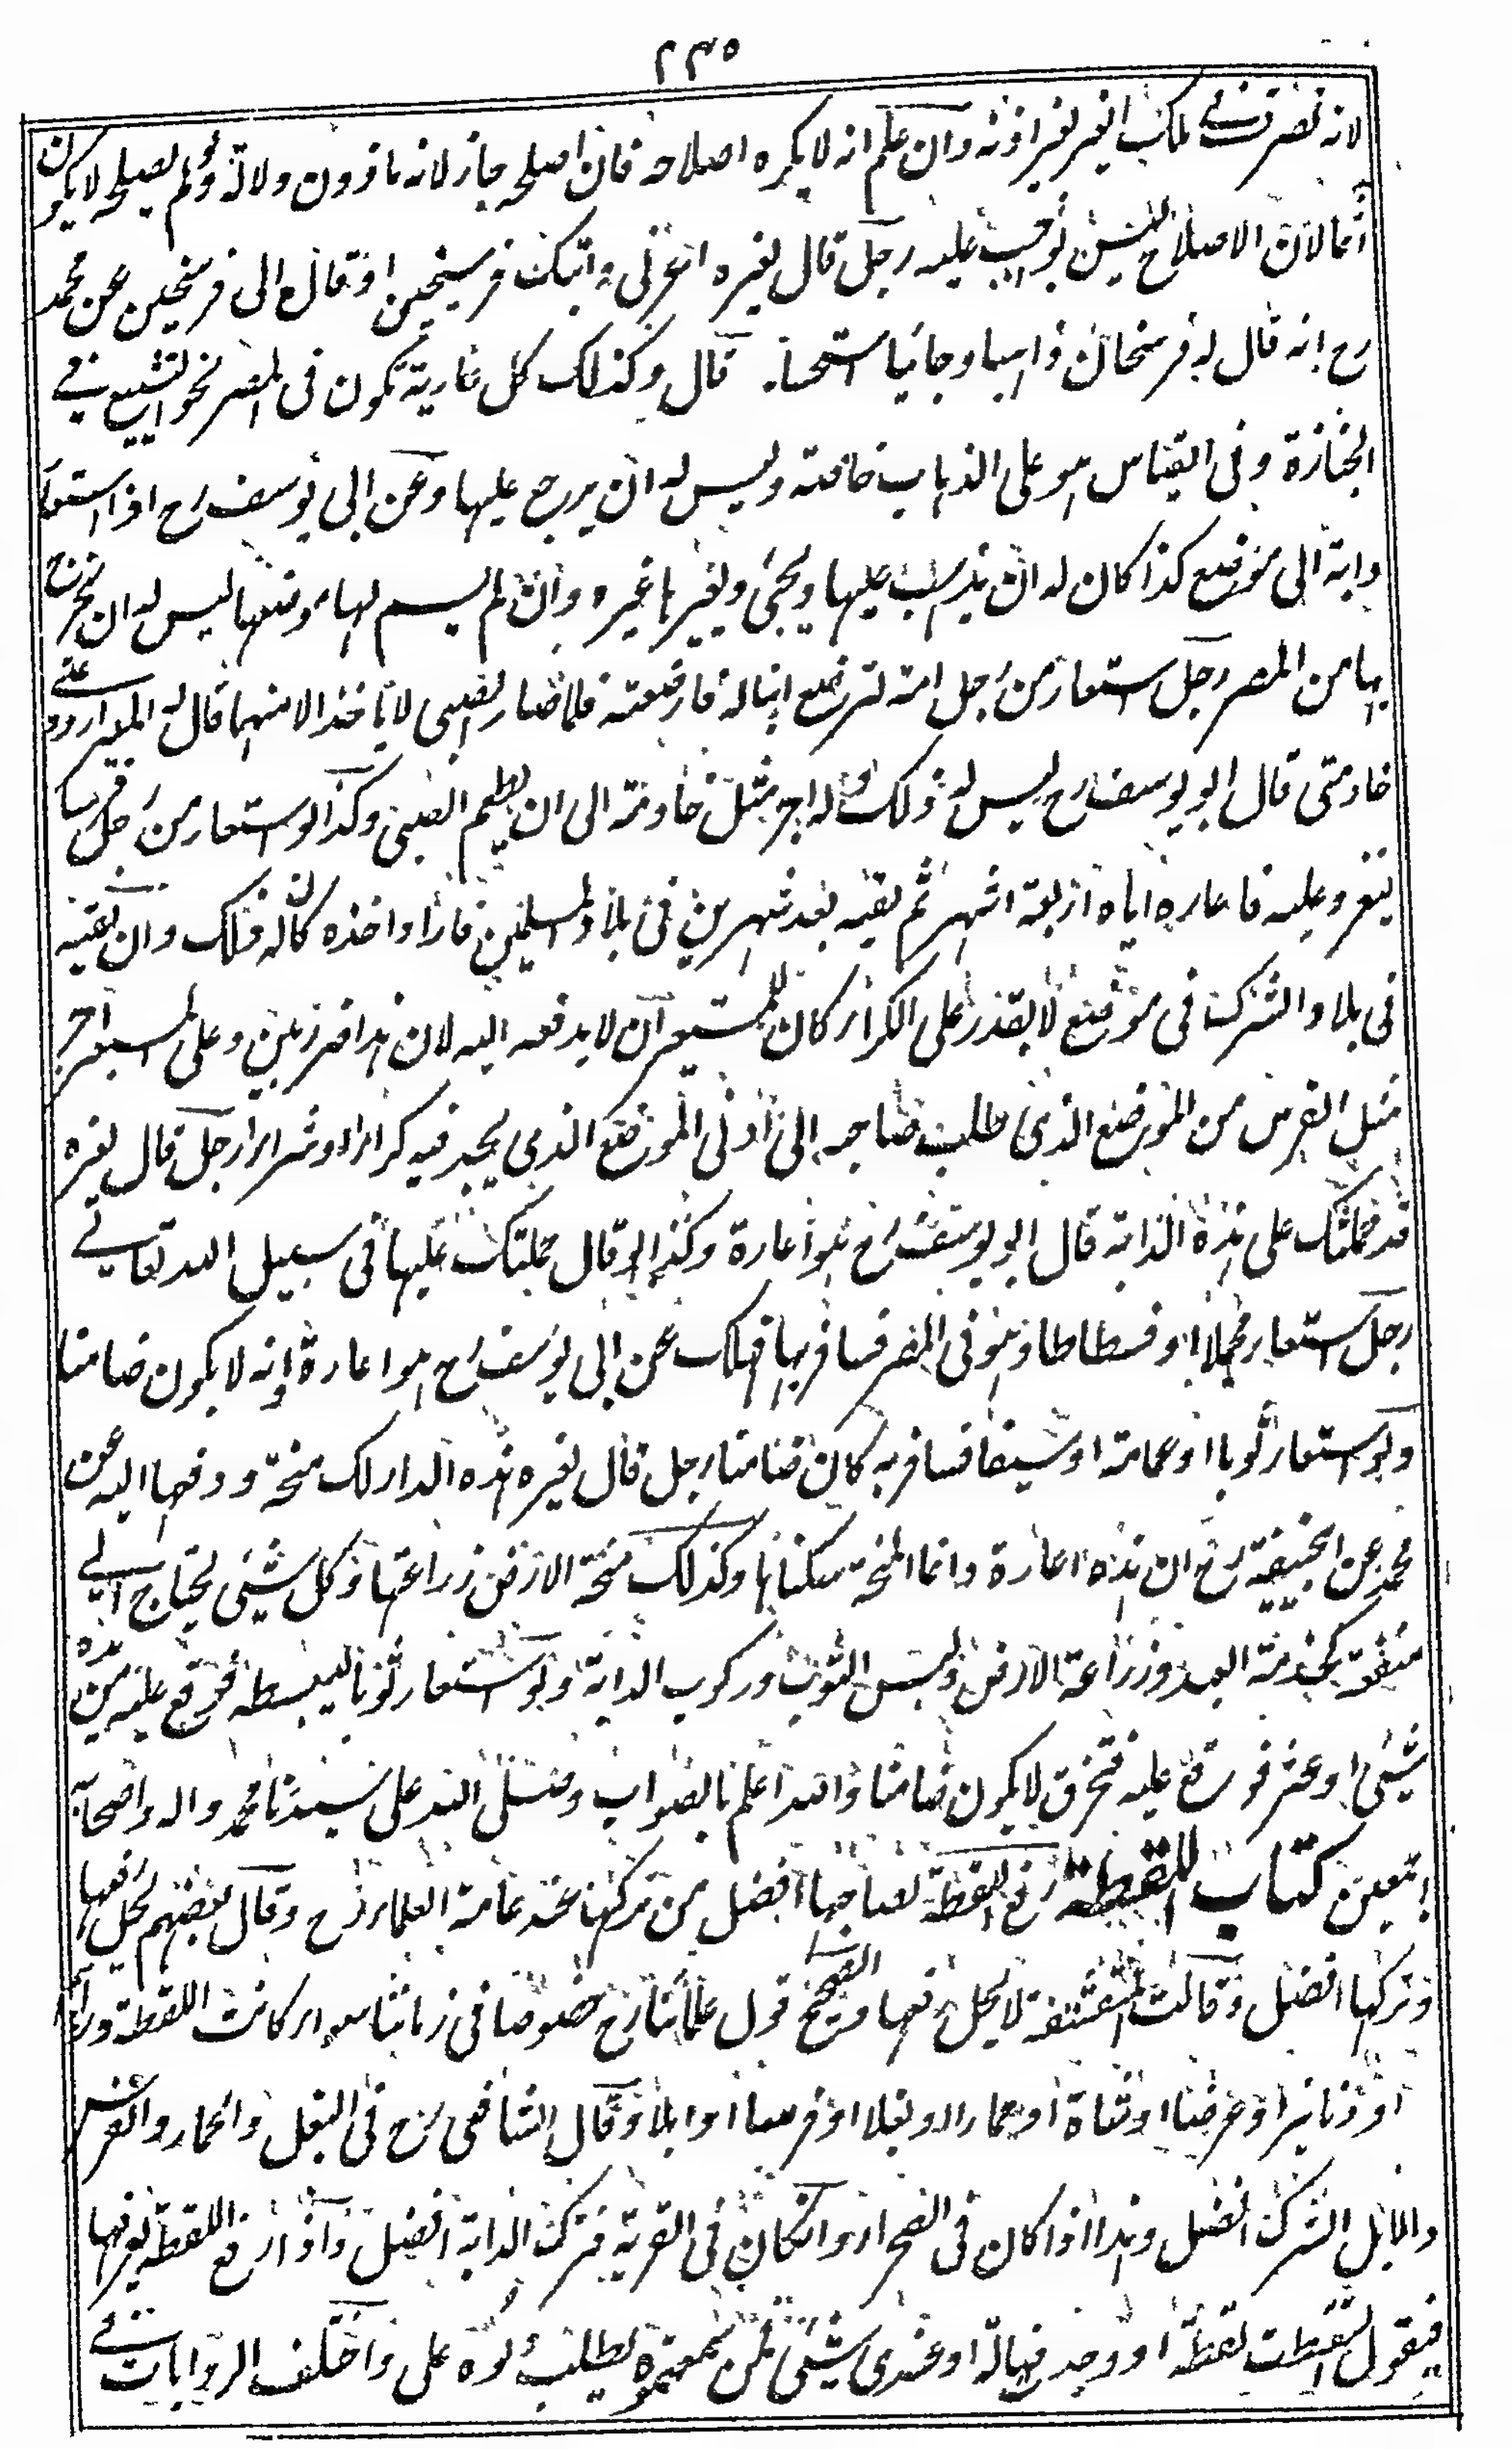 ٢٣٥
لانه تصرف فى ملك الغير بغير اذنه وان علم انه لا يكره اصلاحه فان اصلحه جاز لانه ماذون دلالة ولو لم يصلحه لا يكون
آثما لان الاصلاح ليس بواجب عليه رجل قال لغيره اعرنى دابتك فرسخين او قال الى فرسخين عن محمد
رح انه قال له فرسخان ذاهبا وجائيا استحسانا قال وكذلك كل عارية تكون فى المصر نحو التشييع فى
الجنازة وفى القياس هو على الذهاب خاصة وليس له ان يرجع عليها وعن ابى يوسف رح اذا استعار
دابة الى موضع كذا كان له ان يذهب عليها ويجئ ويعيرها غيره وان لم يسم لها موضعا ليس له ان يخرج
بها من المصر رجل استعار من رجل امة لترضع ابنا له فارضعته فلما صار الصبى لا ياخذ الا منها قال له المعير اردد على
خادمتى قال ابو يوسف رح ليس له ذلك وله اجر مثل خادمته الى ان يفطم الصبى وكذا لو استعار من رجل فرسا
ليغزو عليه فاعاره اياه اربعة اشهر ثم لقيه بعد شهرين فى بلاد المسلمين فاراد اخذه كان له ذلك وان لقيه
فى بلاد الشرك فى موضع لا يقدر على الكراء كان للمستعير ان لا يدفعه اليه لان هذا ضرر بين وعلى المستعير اجر
مثل الفرس من الموضع الذى طلب صاحبه الى ادنى الموضع الذى يجد فيه كراء او شراء رجل قال لغيره
قد حملتك على هذه الدابة قال ابو يوسف رح هو اعارة وكذا لو قال حملتك عليها فى سبيل الله تعالى
رجل استعار محملا او فسطاطا وهو فى المصر فسافر بها فهلك عن ابى يوسف رح هو اعارة وانه لا يكون ضامنا
ولو استعار ثوبا او عمامة او سيفا فسافر به كان ضامنا رجل قال لغيره هذه الدار لك منحة ودفعها اليه عن
محمد عن ابيحنيفة رح ان هذه اعارة وانما المنحة سكناها وكذلك منحة الارض زراعتها وكل شيئى يحتاج الى
منفعته كخدمة العبد وزراعة الارض ولبس الثوب وركوب الدابة ولو استعار ثوبا ليبسطه فوقع عليه من يده
شيئى او عثر فوقع عليه فتخرق لا يكون ضامنا والله اعلم بالصواب وصلى الله على سيدنا محمد واله واصحابه
اجمعين كتاب اللقطة رفع اللقطة لصاحبها افضل من تركها عند عامة العلماء رح وقال بعضهم يحل رفعها
وتركها افضل وقالت المتقشفة لا يحل رفعها والصحيح قول علمائنا رح خصوصا فى زماننا سواء كانت اللقطة دراهم
او دنانير او عرضا او شاة او حمارا او بغلا او فرسا او ابلا وقال الشافعى رح فى البغل والحمار والفرس
والابل الترك افضل وهذا اذا كان فى الصحراء وان كان فى القرية فترك الدابة افضل واذا رفع اللقطة يعرفها
فيقول التقطت لقطة او وجدت ضالة او عندى شيئى فمن سمعتموه يطلب دلوه على واختلف الروايات فى